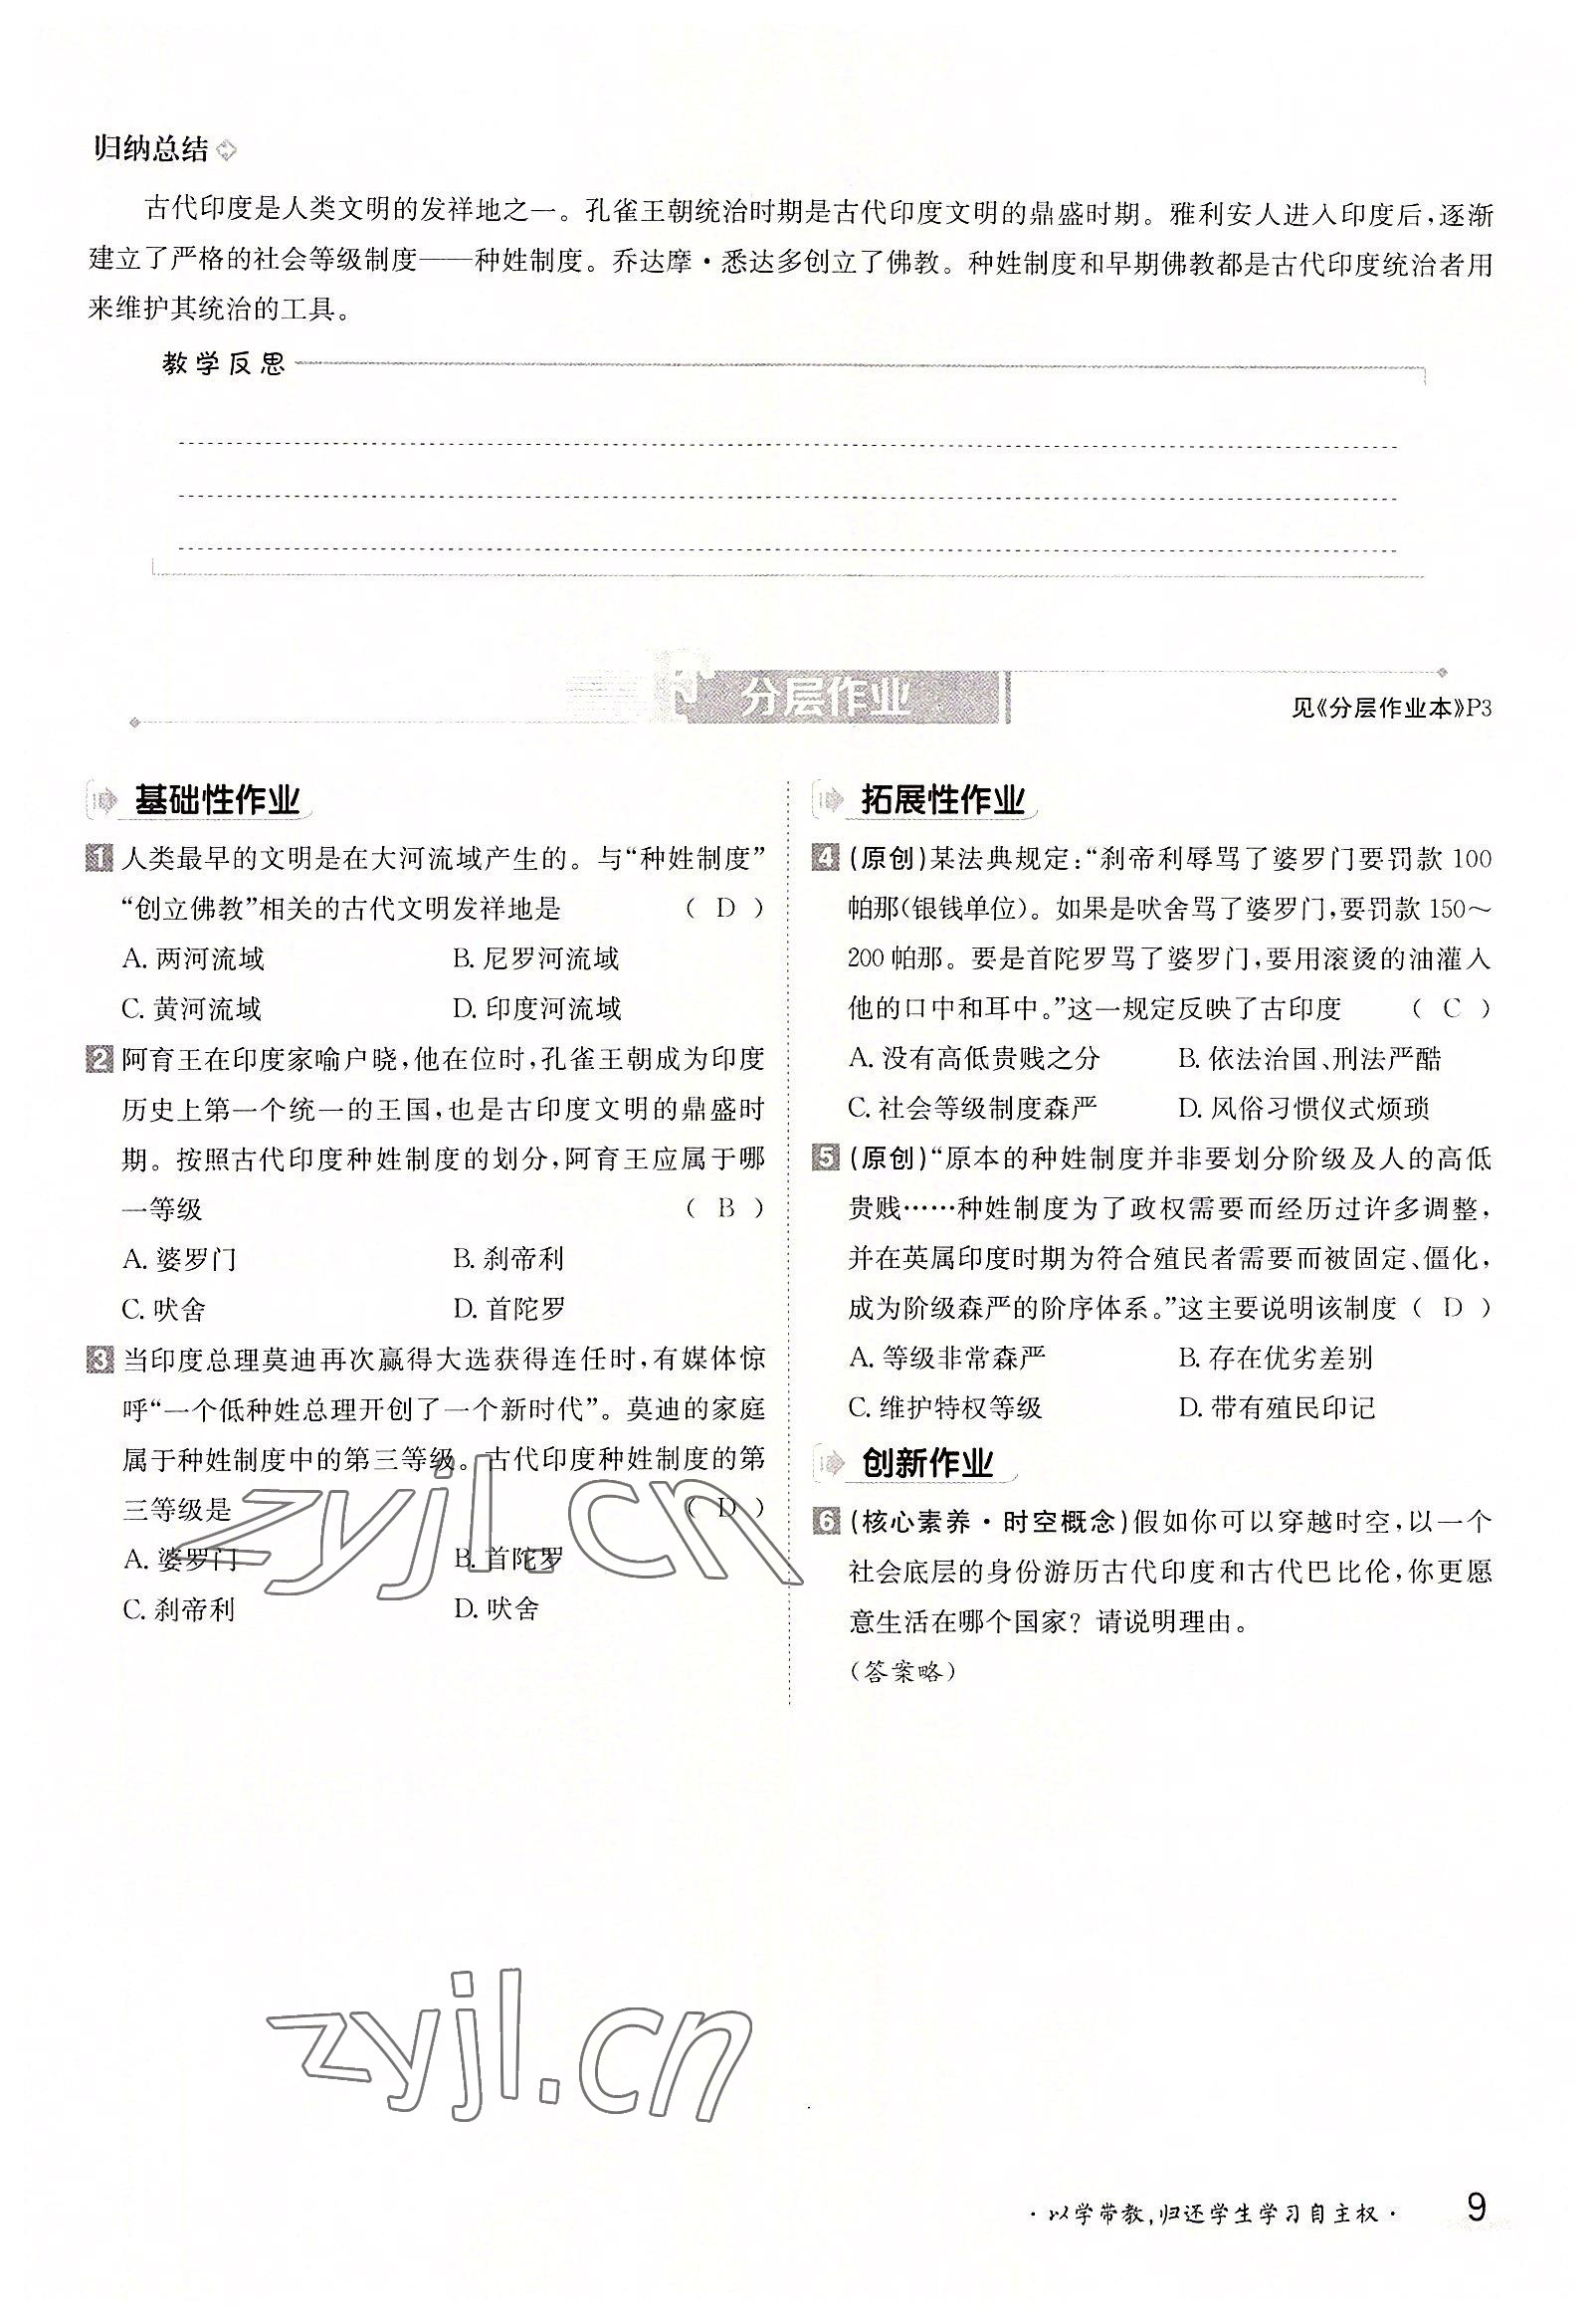 归纳总结
古代印度是人类文明的发祥地之一。孔雀王朝统治时期是古代印度文明的鼎盛时期。雅利安人进入印度后,逐渐
建立了严格的社会等级制度——种姓制度。乔达摩·悉达多创立了佛教。种姓制度和早期佛教都是古代印度统治者用
来维护其统治的工具。
教学反思
分层作业
见《分层作业本》P3
基础性作业
1 人类最早的文明是在大河流域产生的。与“种姓制度”
“创立佛教”相关的古代文明发祥地是 ( D )
A. 两河流域 B. 尼罗河流域
C. 黄河流域 D. 印度河流域
2 阿育王在印度家喻户晓,他在位时,孔雀王朝成为印度
历史上第一个统一的王国,也是古印度文明的鼎盛时
期。按照古代印度种姓制度的划分,阿育王应属于哪
一等级 ( B )
A. 婆罗门 B. 刹帝利
C. 吠舍 D. 首陀罗
3 当印度总理莫迪再次赢得大选获得连任时,有媒体惊
呼“一个低种姓总理开创了一个新时代”。莫迪的家庭
属于种姓制度中的第三等级。古代印度种姓制度的第
三等级是 ( D )
A. 婆罗门 B. 首陀罗
C. 刹帝利 D. 吠舍
拓展性作业
4 (原创)某法典规定:“刹帝利辱骂了婆罗门要罚款 100
帕那(银钱单位)。如果是吠舍骂了婆罗门,要罚款 150～
200 帕那。要是首陀罗骂了婆罗门,要用滚烫的油灌入
他的口中和耳中。”这一规定反映了古印度 ( C )
A. 没有高低贵贱之分 B. 依法治国、刑法严酷
C. 社会等级制度森严 D. 风俗习惯仪式烦琐
5 (原创)“原本的种姓制度并非要划分阶级及人的高低
贵贱……种姓制度为了政权需要而经历过许多调整,
并在英属印度时期为符合殖民者需要而被固定、僵化,
成为阶级森严的阶序体系。”这主要说明该制度 ( D )
A. 等级非常森严 B. 存在优劣差别
C. 维护特权等级 D. 带有殖民印记
创新作业
6 (核心素养·时空概念)假如你可以穿越时空,以一个
社会底层的身份游历古代印度和古代巴比伦,你更愿
意生活在哪个国家? 请说明理由。
(答案略)
zyjl.cn
zyjl.cn
·以学带教,归还学生学习自主权· 9